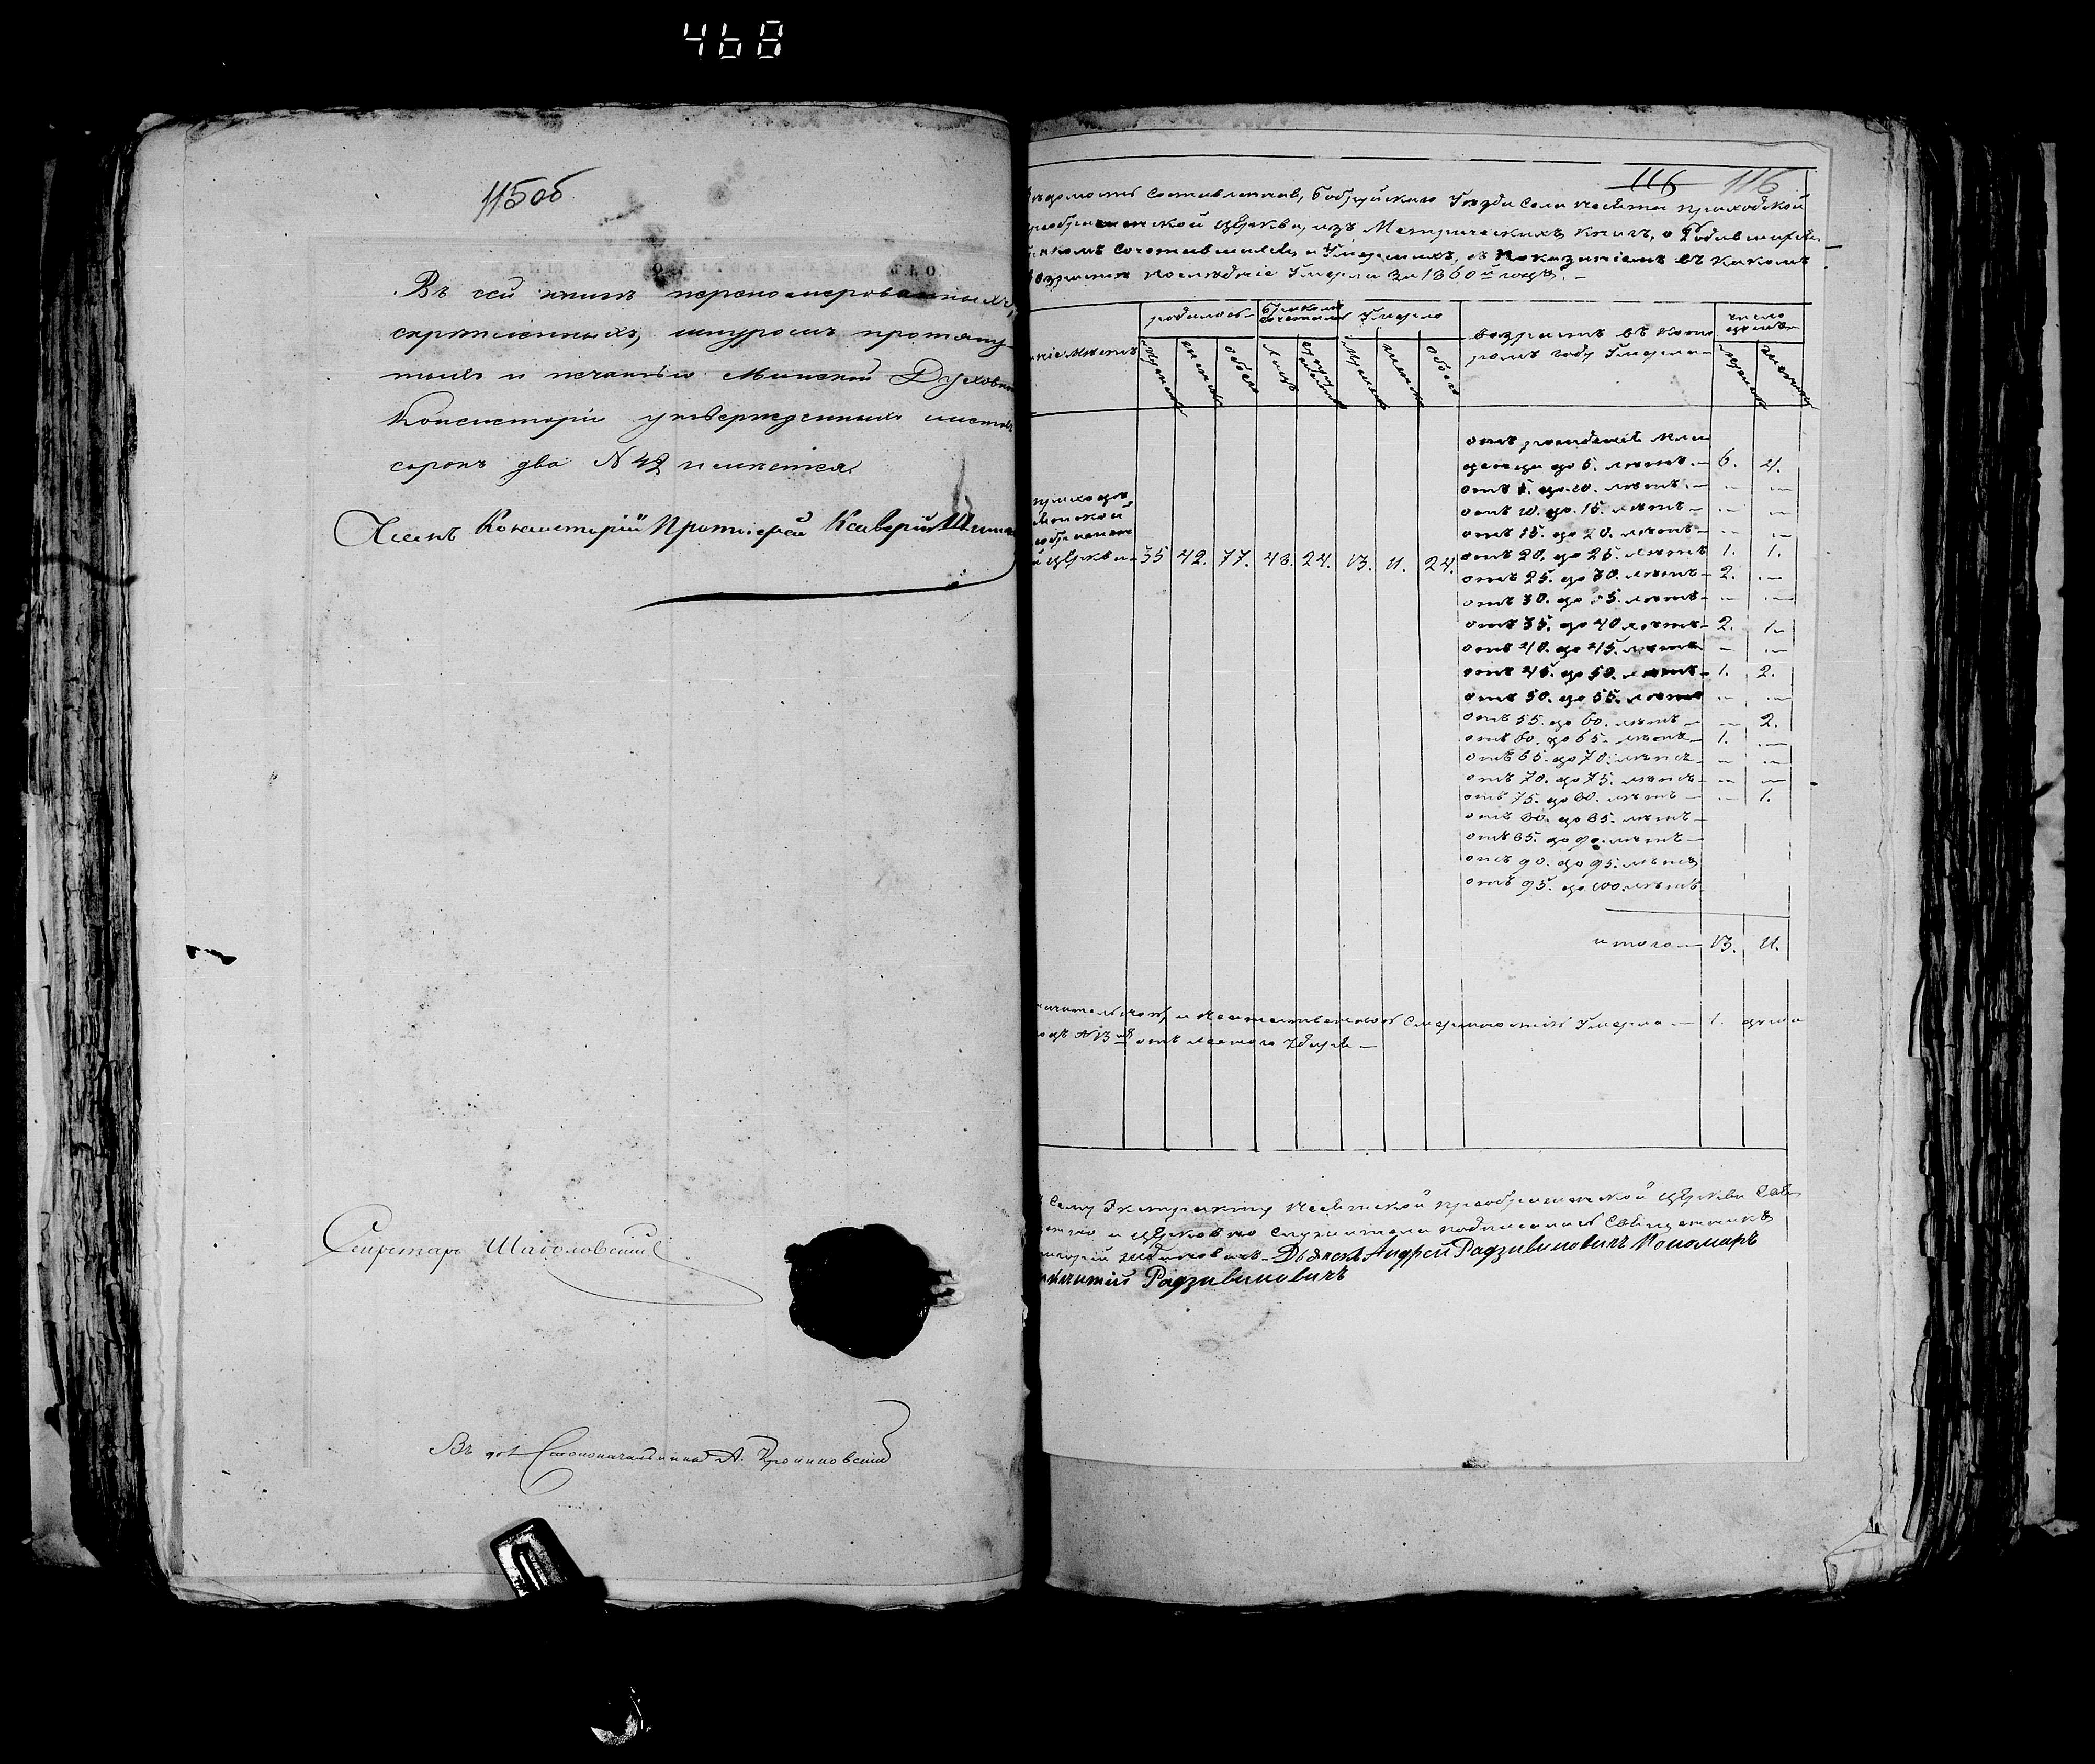 468
115об
Въ сей книгѣ перенумерованныхъ,
скрѣпленныхъ, шнуромъ протяну-
тыхъ и печатью Минской Духовной
Консисторіи утвержденныхъ листовъ
сорокъ два № 42 имѣется.
Членъ Консисторіи Протоіерей Ксаверій
Секретарь
Въ дол. Столоначальника А.
116 116
Вѣдомость составленная, Бобруйскаго Уѣзда села приходской
Преображенской Церкви, изъ Метрическихъ книгъ, о родившихся,
бракомъ сочетавшихся, и умершихъ, съ показаніемъ въ какомъ
возрастѣ послѣдніе умерли за 1860й годъ. —
родилось бракомъ сочетано Умерло возрастъ въ кото- число
ромъ году умерло
мужеска женска обоего лицъ мужеска женска обоего мужеска женска
отъ рожденія мла-
денцы до 5. лѣтъ. — 6. 4.
отъ 5. до 10. лѣтъ. — — —
отъ 10. до 15. лѣтъ — — —
отъ 15. до 20. лѣтъ — — —
Церкви — 35 42. 77. 48. 24. 13. 11. 24. отъ 20. до 25. лѣтъ 1. 1.
отъ 25. до 30. лѣтъ — 2. —
отъ 30. до 35. лѣтъ — — —
отъ 35. до 40 лѣтъ — 2. 1.
отъ 40. до 45. лѣтъ — —
отъ 45. до 50. лѣтъ — 1. 2.
отъ 50. до 55. лѣтъ — —
отъ 55. до 60. лѣтъ — — 2.
отъ 60. до 65. лѣтъ — 1. —
отъ 65. до 70. лѣтъ — — —
отъ 70. до 75. лѣтъ — — —
отъ 75. до 80. лѣтъ — — 1.
отъ 80. до 85. лѣтъ —
отъ 85. до 90. лѣтъ —
отъ 90. до 95. лѣтъ
отъ 95. до 100. лѣтъ
итого — 13. 11.
Умерло — 1. душа
подъ № 13 отъ
сему Экстракту Преображенской Церкви
и Церковно служители подписались Священникъ
Дьячекъ Андрей Радзивиновичъ Пономаръ
Радзивиновичъ